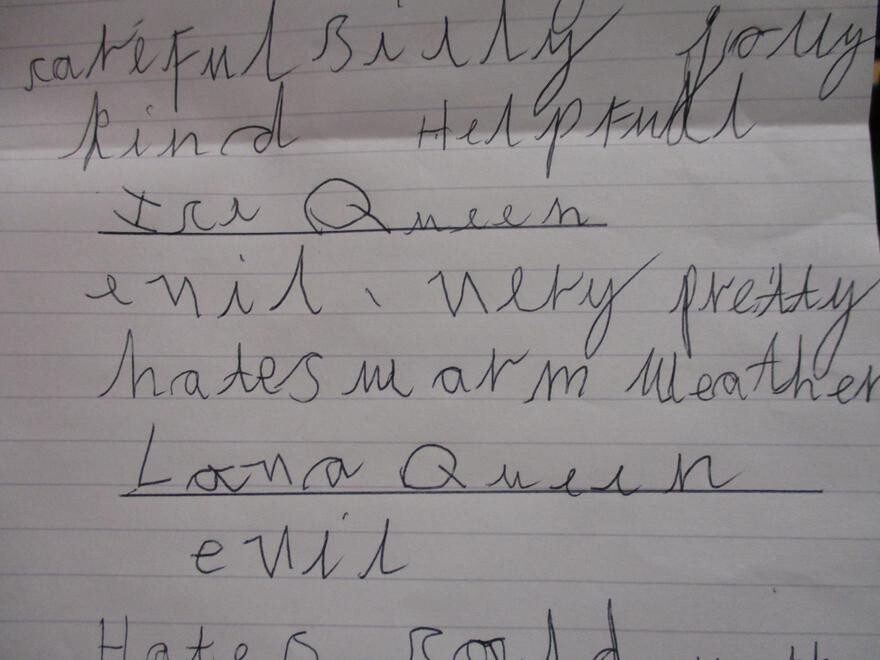 careful Silly jolly
kind HelpFull
Ice Queen
evil. very pretty
hates warm weather
Lava Queen
evil
Hates coold